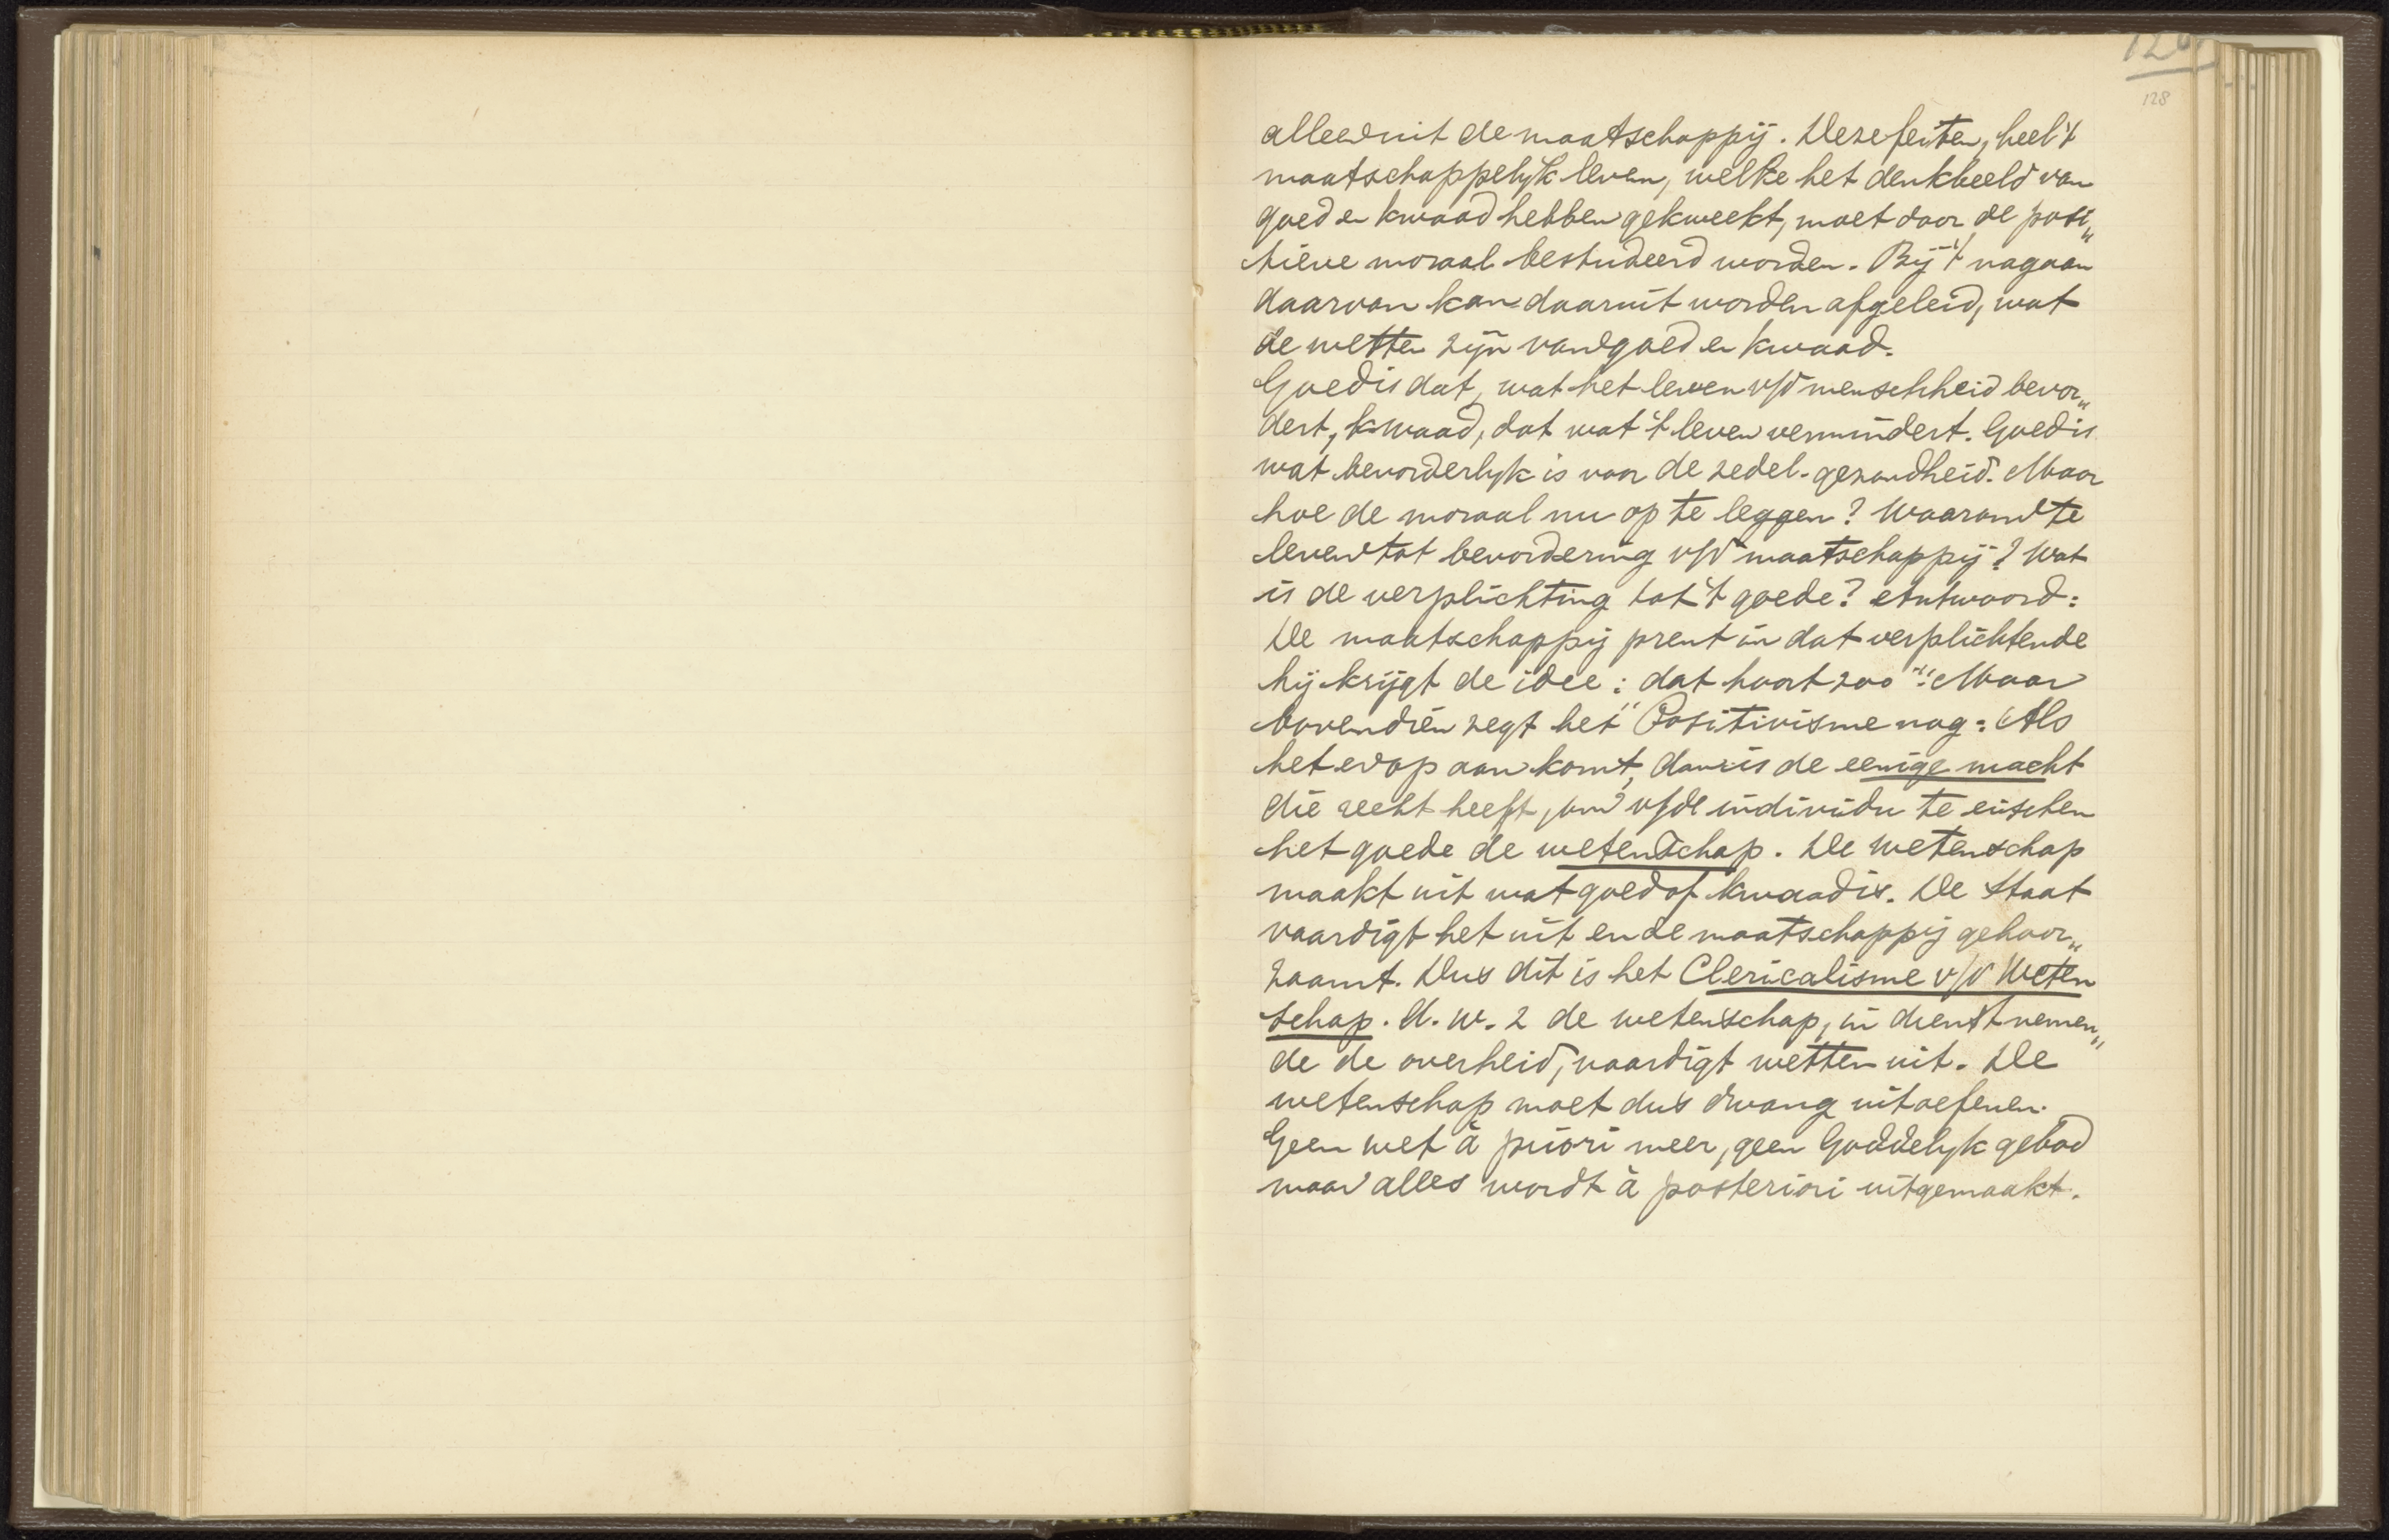 128
alleen uit de maatschappij. Deze feiten, heel 't
maatschappelijk leven, welke het denkbeeld van
goed en kwaad hebben gekweekt, moet door de posi„
tieve moraal bestudeerd worden. Bij 't nagaan
daarvan kan daaruit worden afgeleid, wat
de wetten zijn van goed en kwaad.
Goed is dat, wat het leven v/d menschheid bevor„
dert, kwaad, dat wat 't leven vermindert. Goed is
wat bevorderlijk is voor de zedel. gezondheid. Maar
hoe de moraal nu op te leggen? Waarom te
leven tot bevordering v/d maatschappij? Wat
is de verplichting tot 't goede? Antwoord:
De maatschappij prent in dat verplichtende
hij krijgt de idee: „dat hoort zoo". Maar
bovendien zegt het Positivisme nog: Als
het erop aankomt, dan is de eenige macht
die recht heeft, om v/de individu te eischen
het goede de wetenschap. De wetenschap
maakt uit wat goed of kwaad is. De Staat
vaardigt het uit en de maatschappij gehoor„
zaamt. Dus dit is het Clericalisme v/d Weten
schap. d.w.z de wetenschap, in dienst nemen„
de de overheid, vaardigt wetten uit. De
wetenschap moet dus dwang uitoefenen.
Geen wet à priori meer, geen Goddelijk gebod
maar alles wordt à posteriori uitgemaakt.